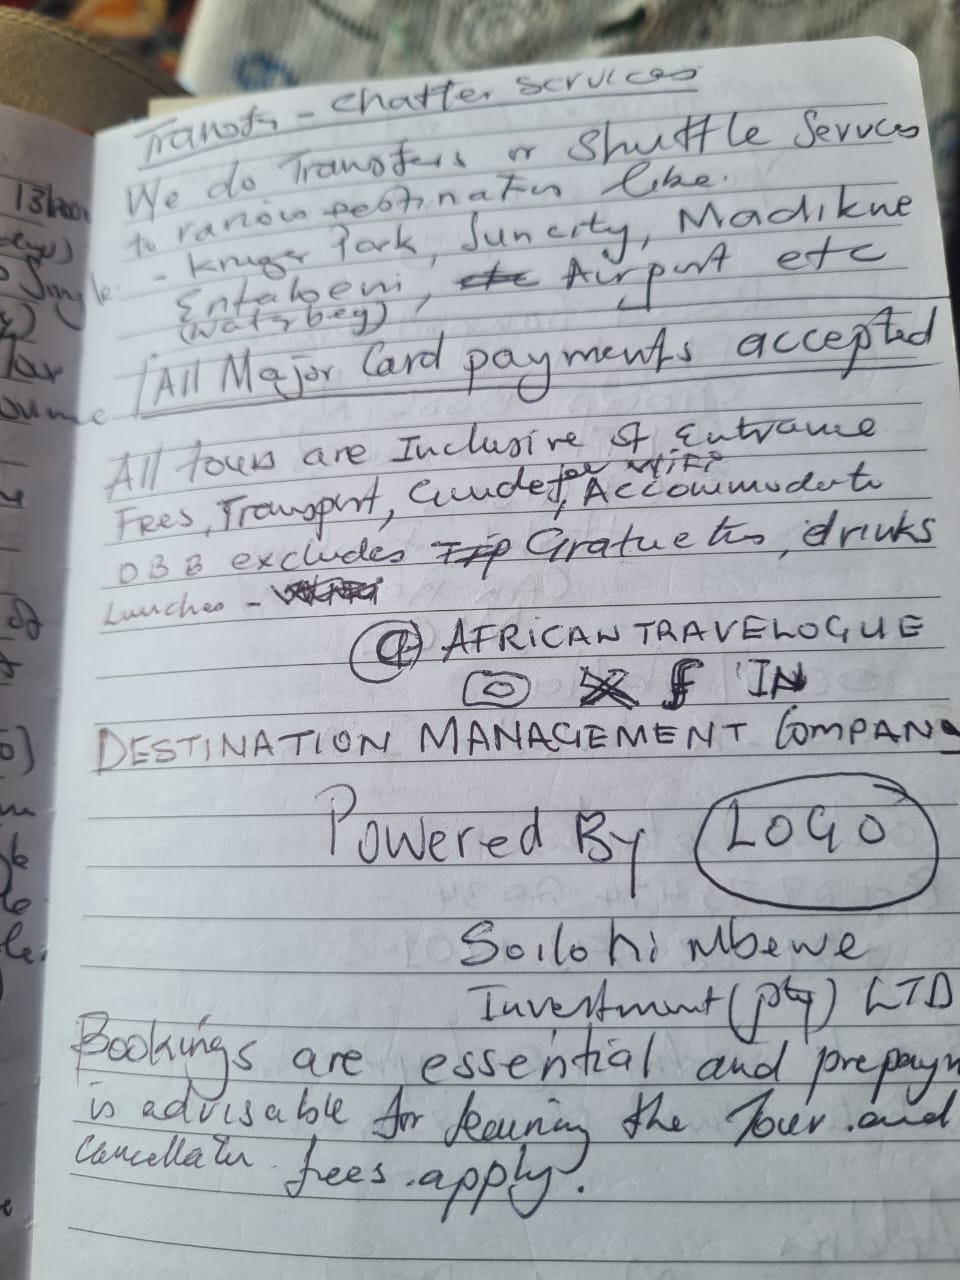 Transfr - Chatter Services
We do Transfers or Shuttle Services
to various destinatin like.
- Kruger Park, Suncity, Madikwe
Entabeni, etc Airport etc
(Waterbeg)
All Major Card payments accepted
All tours are Inclusive of Entrance
Fees, Transport, Guide fee, WiFi
Accommodatn
DBB excludes Tip Gratuetis, drinks
Lunches -
@ AFRICANTRAVELOGUE
X f IN
DESTINATION MANAGEMENT COMPANY
Powered By LOGO
Soilohi Mbewe
Investment (pty) LTD
Bookings are essential and prepaym
is advisable for the Tour and
Cancellatn fees apply.
13
Single